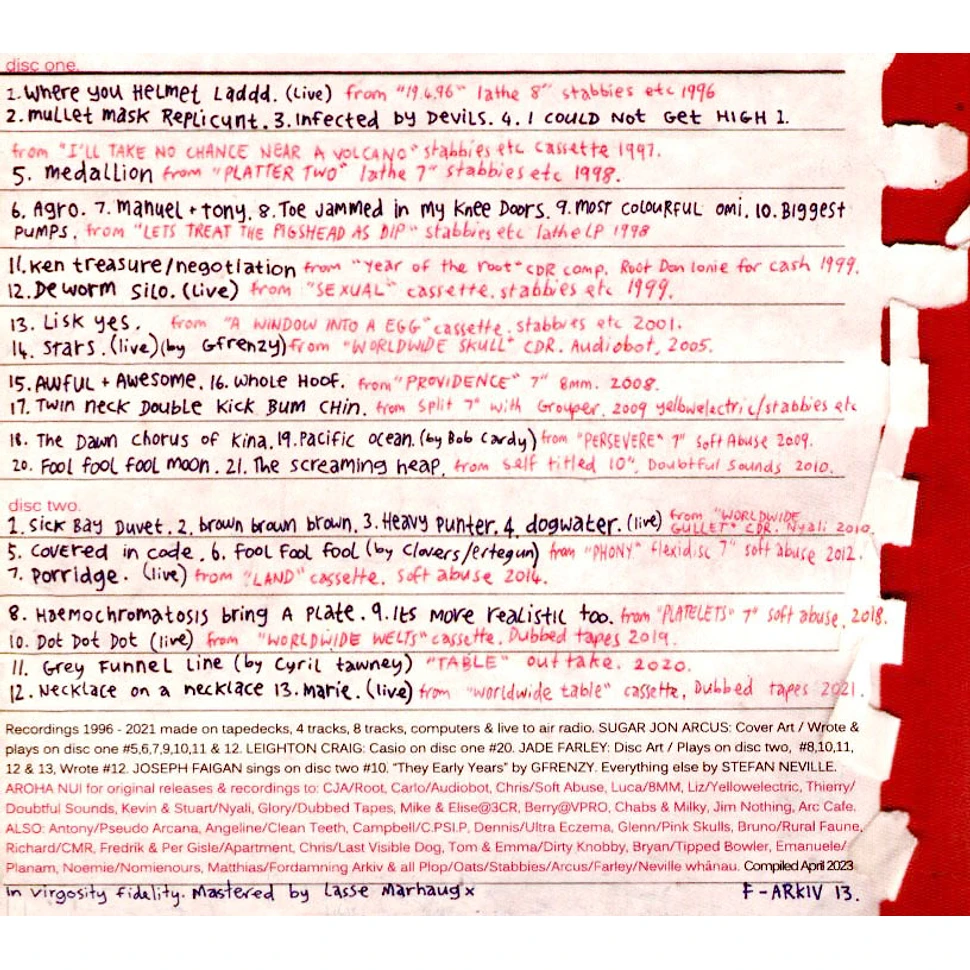 disc one.
1. Where you Helmet Laddd. (Live) from "19.4.96" lathe 8" stabbies etc 1996
2. mullet mask Replicunt. 3. Infected by Devils. 4. I COULD NOT GET HIGH 1.
from "I'LL TAKE NO CHANCE NEAR A VOLCANO" stabbies etc cassette 1997.
5. medallion from "PLATTER TWO" lathe 7" stabbies etc 1998.
6. Agro. 7. Manuel + tony. 8. Toe Jammed in my Knee Doors. 9. MOST COLOURFUL omi. 10. BIGGEST
PUMPS. from "LETS TREAT THE PIGSHEAD AS DIP" stabbies etc lathe LP 1998
11. Ken treasure/negotiation from "year of the root" CDR comp. Root Don lonie for cash 1999.
12. De worm Silo. (Live) from "SEXUAL" cassette. stabbies etc 1999.
13. Lisk yes. from "A WINDOW INTO A EGG" cassette. stabbies etc 2001.
14. Stars. (live) (by Gfrenzy) from "WORLDWIDE SKULL" CDR. Audiobot, 2005.
15. AWFUL + Awesome. 16. Whole Hoof. from "PROVIDENCE" 7" 8mm. 2008.
17. Twin neck Double Kick Bum CHin. from Split 7" with Grouper. 2009 yellowelectric/stabbies etc
18. The Dawn chorus of Kina. 19. Pacific ocean. (by Bob Cardy) from "PERSEVERE" 7" Soft Abuse 2009.
20. Fool fool fool moon. 21. The screaming heap. from self titled 10". Doubtful Sounds 2010.
disc two.
1. Sick Bay Duvet. 2. brown brown brown. 3. Heavy Punter. 4. dogwater. (live) from "WORLDWIDE
GULLET" CDR. Nyali 2010.
5. Covered in code. 6. Fool Fool Fool (by Clovers/ertegun) from "PHONY" flexidisc 7" soft abuse 2012.
7. Porridge. (live) from "LAND" cassette. Soft abuse 2014.
8. Haemochromatosis bring A Plate. 9. Its more realistic too. from "PLATELETS" 7" soft abuse. 2018.
10. Dot Dot Dot (live) from "WORLDWIDE WELTS" cassette. Dubbed tapes 2019.
11. Grey Funnel Line (by Cyril tawney) "TABLE" out take. 2020.
12. Necklace on a necklace 13. Marie. (live) from "worldwide table" cassette, Dubbed tapes 2021.
Recordings 1996 - 2021 made on tapedecks, 4 tracks, 8 tracks, computers & live to air radio. SUGAR JON ARCUS: Cover Art / Wrote &
plays on disc one #5,6,7,9,10,11 & 12. LEIGHTON CRAIG: Casio on disc one #20. JADE FARLEY: Disc Art / Plays on disc two, #8,10,11,
12 & 13, Wrote #12. JOSEPH FAIGAN sings on disc two #10. "They Early Years" by GFRENZY. Everything else by STEFAN NEVILLE.
AROHA NUI for original releases & recordings to: CJA/Root, Carlo/Audiobot, Chris/Soft Abuse, Luca/8MM, Liz/Yellowelectric, Thierry/
Doubtful Sounds, Kevin & Stuart/Nyali, Glory/Dubbed Tapes, Mike & Elise@3CR, Berry@VPRO, Chabs & Milky, Jim Nothing, Arc Cafe.
ALSO: Antony/Pseudo Arcana, Angeline/Clean Teeth, Campbell/C.PSI.P, Dennis/Ultra Eczema, Glenn/Pink Skulls, Bruno/Rural Faune,
Richard/CMR, Fredrik & Per Gisle/Apartment, Chris/Last Visible Dog, Tom & Emma/Dirty Knobby, Bryan/Tipped Bowler, Emanuele/
Planam, Noemie/Nomienours, Matthias/Fordamning Arkiv & all Plop/Oats/Stabbies/Arcus/Farley/Neville whānau. Compiled April 2023
in virgosity fidelity. Mastered by Lasse Marhaug x F-ARKIV 13.